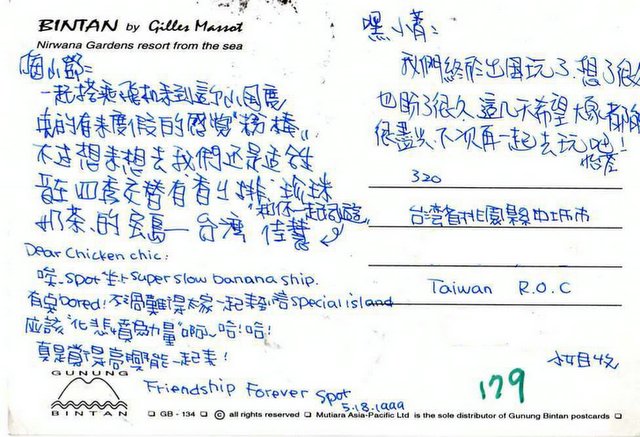 BINTAN by Gilles Massot
Nirwana Gardens resort from the sea
嘿小菁:
我們終於出國玩了.想了很久
也盼了很久.這几天希望大家都能
很盡興.下次再一起去玩吧!
小鄧:
一起搭乘飛机來到這个小国度
真的有來度假的感覺"粉棒"
不过想來想去我們还是适合生
在四季交替有香ㄐ排.珍珠
奶茶的宝島—台灣 佳慧
"和你一起同遊"
320
台湾省桃園縣中壢市
Taiwan R.O.C
Dear Chicken chic:
唉..spot坐上super slow banana ship.
有桌bored!不過難得大家一起來到這special island
应該"化悲憤為力量"啊~哈!哈!
真是覺得高興能一起來!
Friendship Forever Spot
5.18.1999
小姐收
179
GUNUNG
BINTAN
GB - 134 © all rights reserved Mutiara Asia-Pacific Ltd is the sole distributor of Gunung Bintan postcards